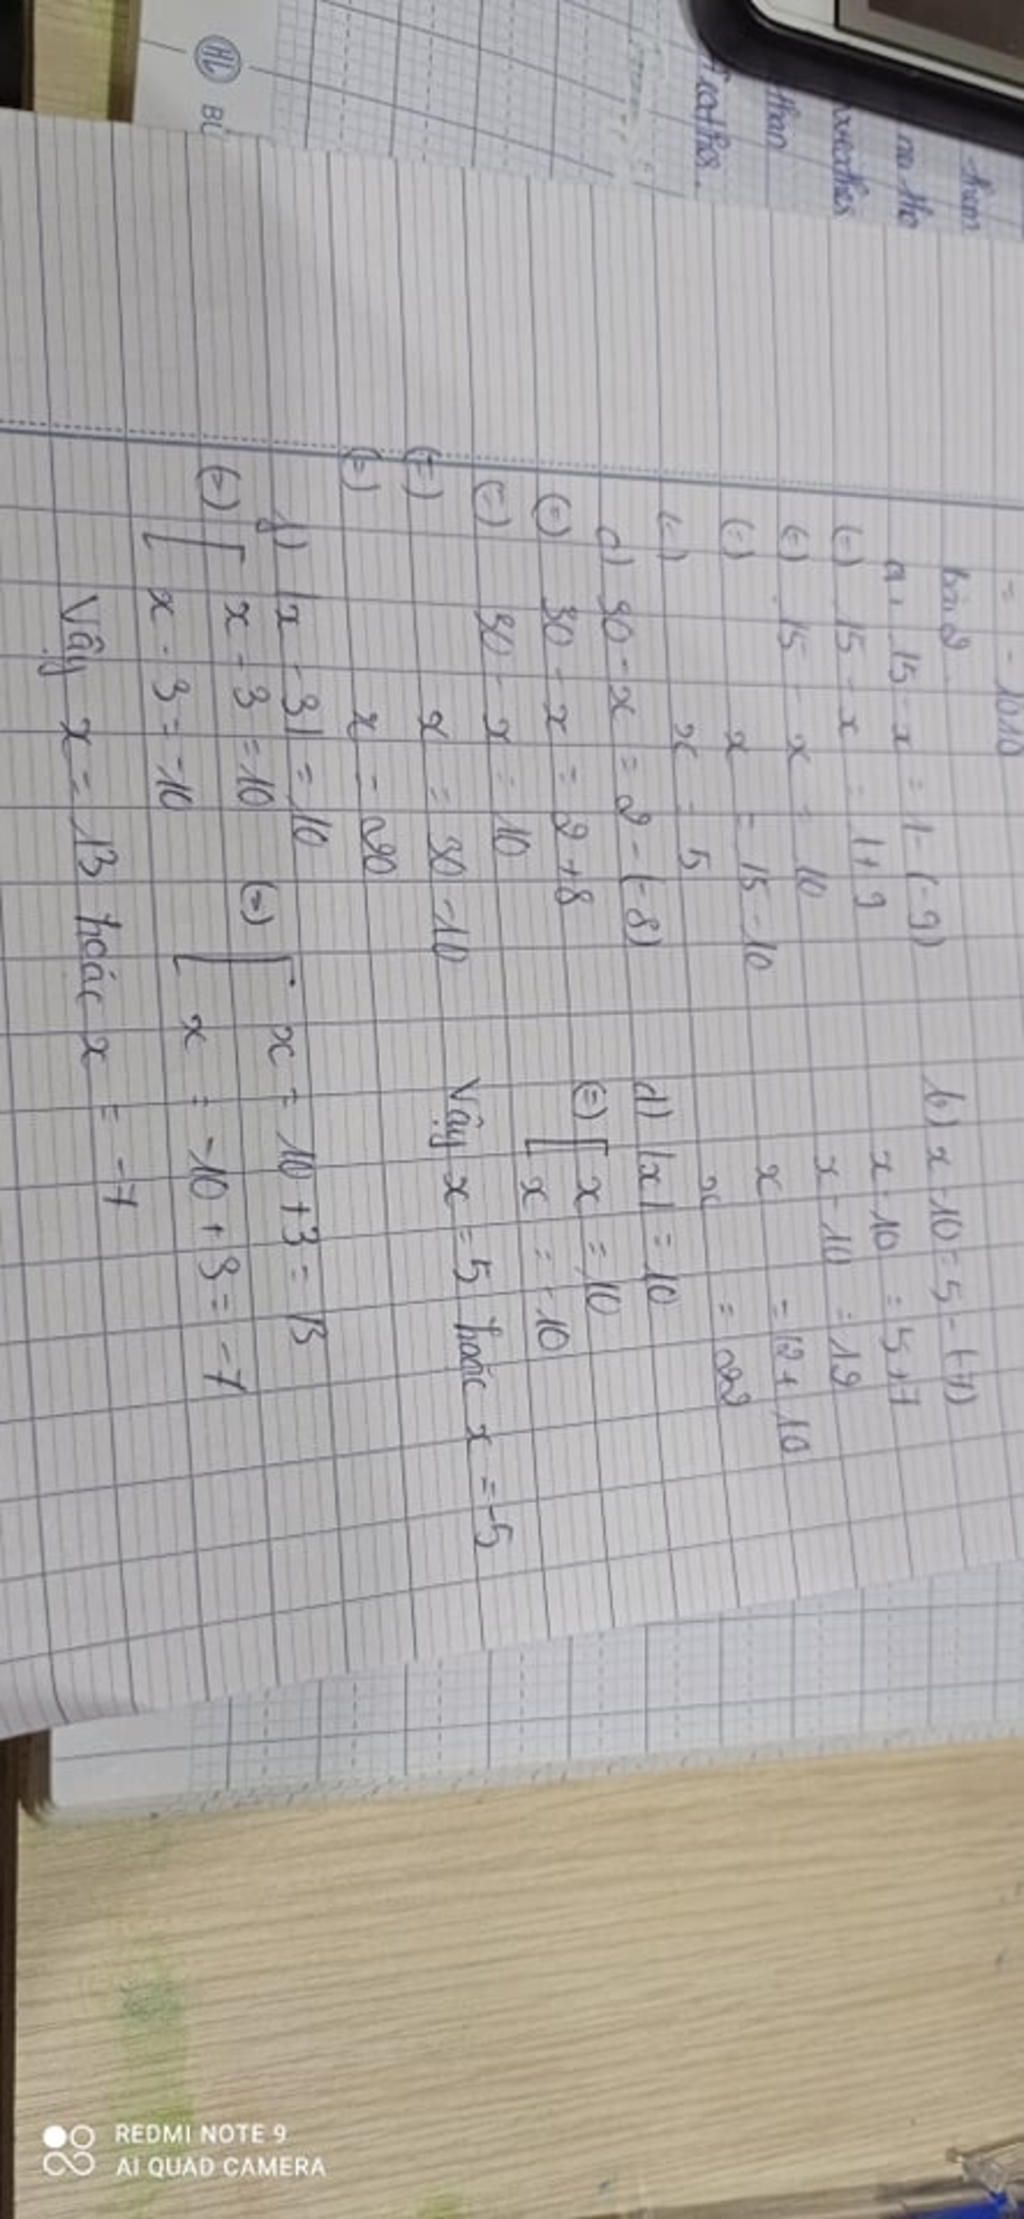 them
on the
than
Feathers.
HL BÙ
= - 1010
bài 2
a, 15 - x = 1 - (-9)
(=) 15 - x = 1 + 9
(=) 15 - x = 10
(=) x = 15 - 10
(=) x = 5
b) x - 10 = 5 - (-7)
x - 10 = 5 + 7
x - 10 = 12
x = 12 + 10
x = 22
c) 30 - x = 2 - (-8)
(=) 30 - x = 2 + 8
(=) 30 - x = 10
(=) x = 30 - 10
(=) x = 20
d) |x| = 10
(=) [ x = 10
x = -10
Vậy x = 5 hoặc x = -5
f) |x - 3| = 10
(=) [ x - 3 = 10 (=) [ x = 10 + 3 = 13
x - 3 = -10 x = -10 + 3 = -7
Vậy x = 13 hoặc x = -7
REDMI NOTE 9
AI QUAD CAMERA